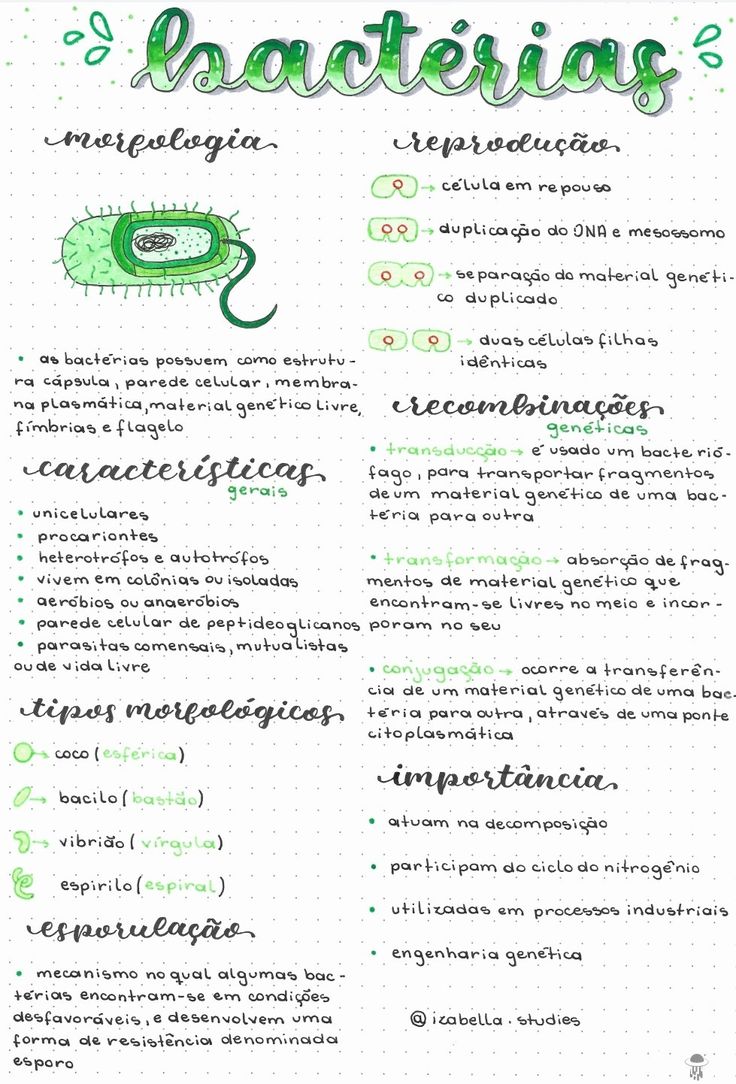 bactérias
morfologia
• as bactérias possuem como estrutu-
ra cápsula, parede celular, membra-
na plasmática, material genético livre,
fímbrias e flagelo
características
gerais
• unicelulares
• procariontes
• heterotrófos e autotrófos
• vivem em colônias ou isoladas
• aeróbios ou anaeróbios
• parede celular de peptideoglicanos
• parasitas comensais, mutualistas
ou de vida livre
tipos morfológicos
→ coco (esférica)
→ bacilo (bastão)
→ vibrião (vírgula)
espirilo (espiral)
esporulação
• mecanismo no qual algumas bac-
térias encontram-se em condições
desfavoráveis, e desenvolvem uma
forma de resistência denominada
esporo
reprodução
→ célula em repouso
→ duplicação do DNA e mesossomo
→ separação do material genéti-
co duplicado
→ duas células filhas
idênticas
recombinações
genéticas
• transducção → é usado um bacterió-
fago, para transportar fragmentos
de um material genético de uma bac-
téria para outra
• transformação → absorção de frag-
mentos de material genético que
encontram-se livres no meio e incor-
poram no seu
• conjugação → ocorre a transferên-
cia de um material genético de uma bac-
téria para outra, através de uma ponte
citoplasmática
importância
• atuam na decomposição
• participam do ciclo do nitrogênio
• utilizadas em processos industriais
• engenharia genética
@izabella.studies